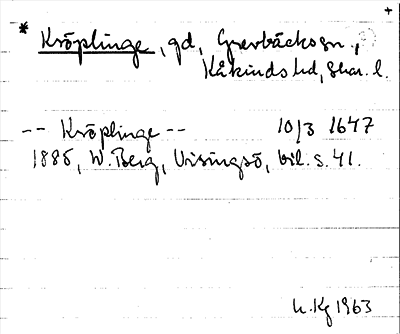 +
* Kröplinge, gd, Grevbäcks sn.,
Kåkinds hd, Skar. l.
-- Kröplinge -- 10/3 1647
1885, W. Berg, Visingsö, bil. s. 41.
1963